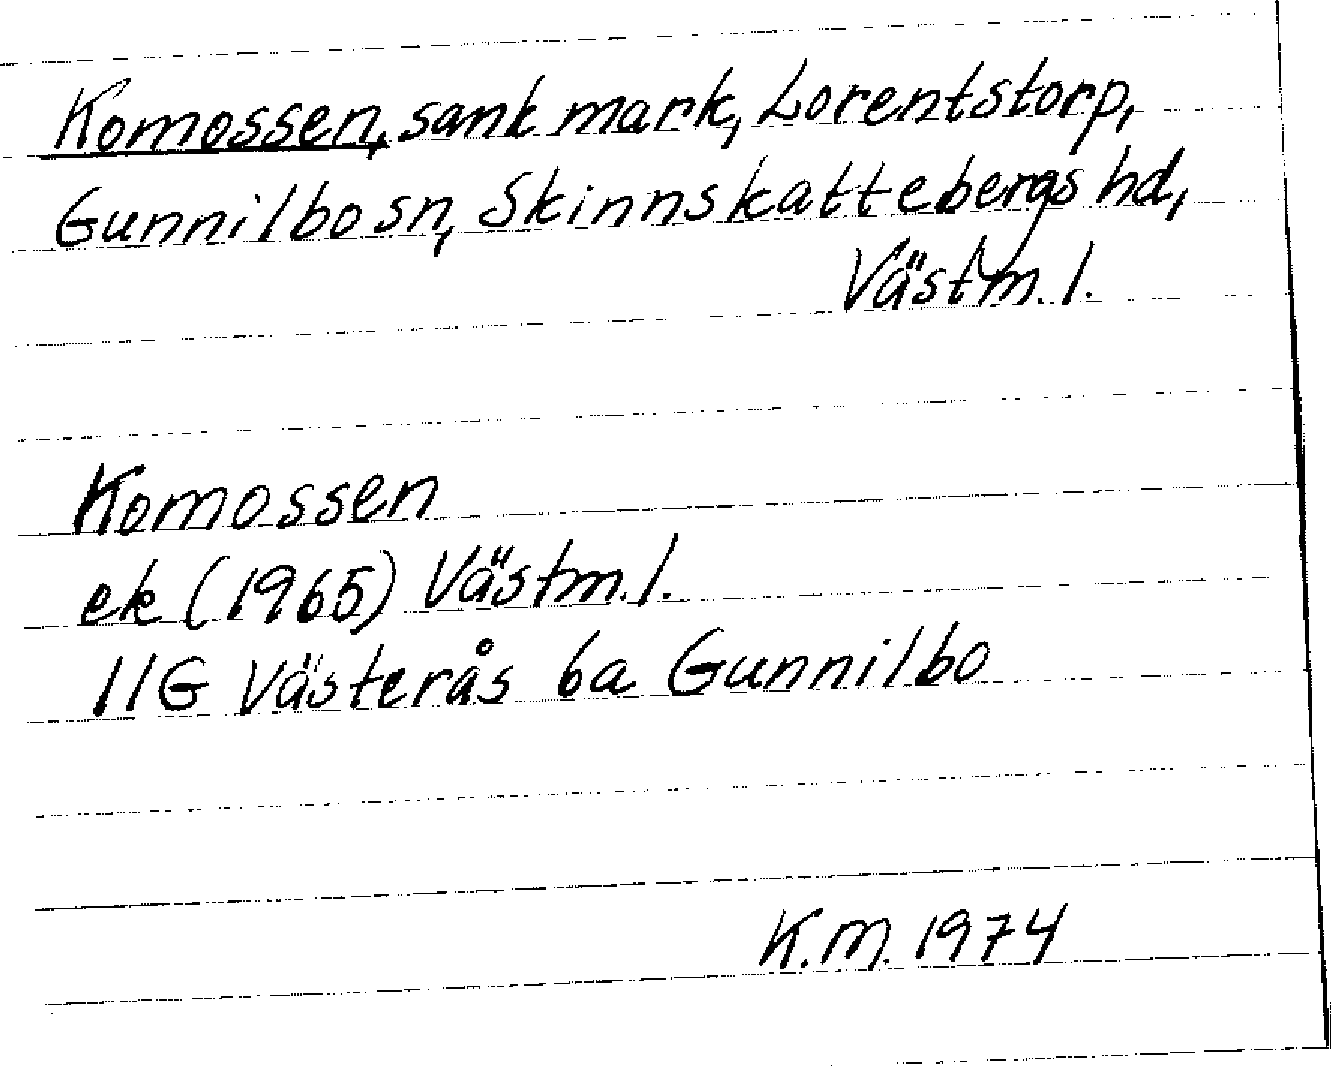 Komossen, sank mark, Lorentstorp,
Gunnilbo sn, Skinnskattebergs hd,
Västm. l.
Komossen
ek (1965) Västm. l.
11G Västerås 6a Gunnilbo
K.M. 1974